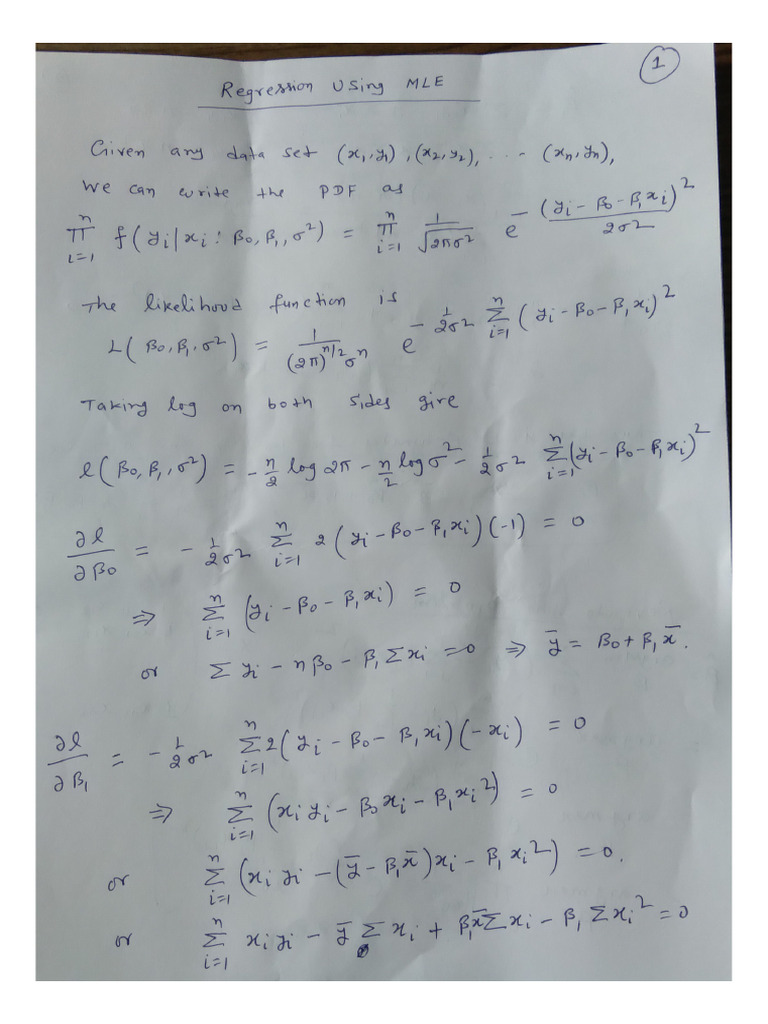 1
Regression Using MLE
Given any data set (x₁,y₁), (x₂,y₂), ... (xₙ,yₙ),
We can write the PDF as
∏ᵢ₌₁ⁿ f(yᵢ|xᵢ : β₀, β₁, σ²) = ∏ᵢ₌₁ⁿ 1/√(2πσ²) e^{-(yᵢ-β₀-β₁xᵢ)²/2σ²}
The likelihood function is
L(β₀, β₁, σ²) = 1/((2π)^{n/2} σⁿ) e^{-1/2σ² ∑ᵢ₌₁ⁿ (yᵢ-β₀-β₁xᵢ)²}
Taking log on both sides give
l(β₀, β₁, σ²) = -n/2 log 2π - n/2 log σ² - 1/2σ² ∑ᵢ₌₁ⁿ (yᵢ-β₀-β₁xᵢ)²
∂l/∂β₀ = -1/2σ² ∑ᵢ₌₁ⁿ 2(yᵢ-β₀-β₁xᵢ)(-1) = 0
⇒ ∑ᵢ₌₁ⁿ (yᵢ-β₀-β₁xᵢ) = 0
or ∑yᵢ - nβ₀ - β₁∑xᵢ = 0 ⇒ ȳ = β₀ + β₁x̄.
∂l/∂β₁ = -1/2σ² ∑ᵢ₌₁ⁿ 2(yᵢ-β₀-β₁xᵢ)(-xᵢ) = 0
⇒ ∑ᵢ₌₁ⁿ (xᵢyᵢ - β₀xᵢ - β₁xᵢ²) = 0
or ∑ᵢ₌₁ⁿ (xᵢyᵢ - (ȳ-β₁x̄)xᵢ - β₁xᵢ²) = 0.
or ∑ᵢ₌₁ⁿ xᵢyᵢ - ȳ∑xᵢ + β₁x̄∑xᵢ - β₁∑xᵢ² = 0